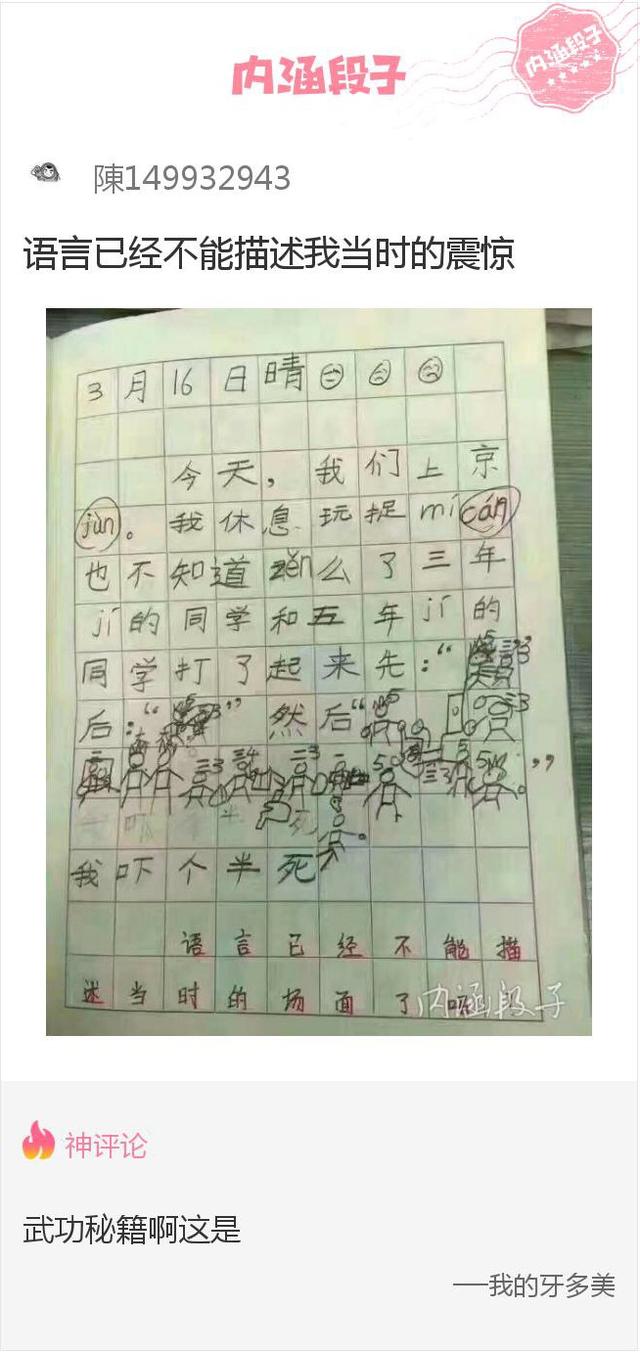 内涵段子
内涵段子
陳149932943
语言已经不能描述我当时的震惊
3月16日晴
今天，我们上京
jùn。我休息玩捉mícán
也不知道zěn么了三年
jí的同学和五年jí的
同学打了起来先：“
后：“”然后“
”
我吓个半死
语言已经不能描
述当时的场面了
内涵段子
神评论
武功秘籍啊这是
──我的牙多美